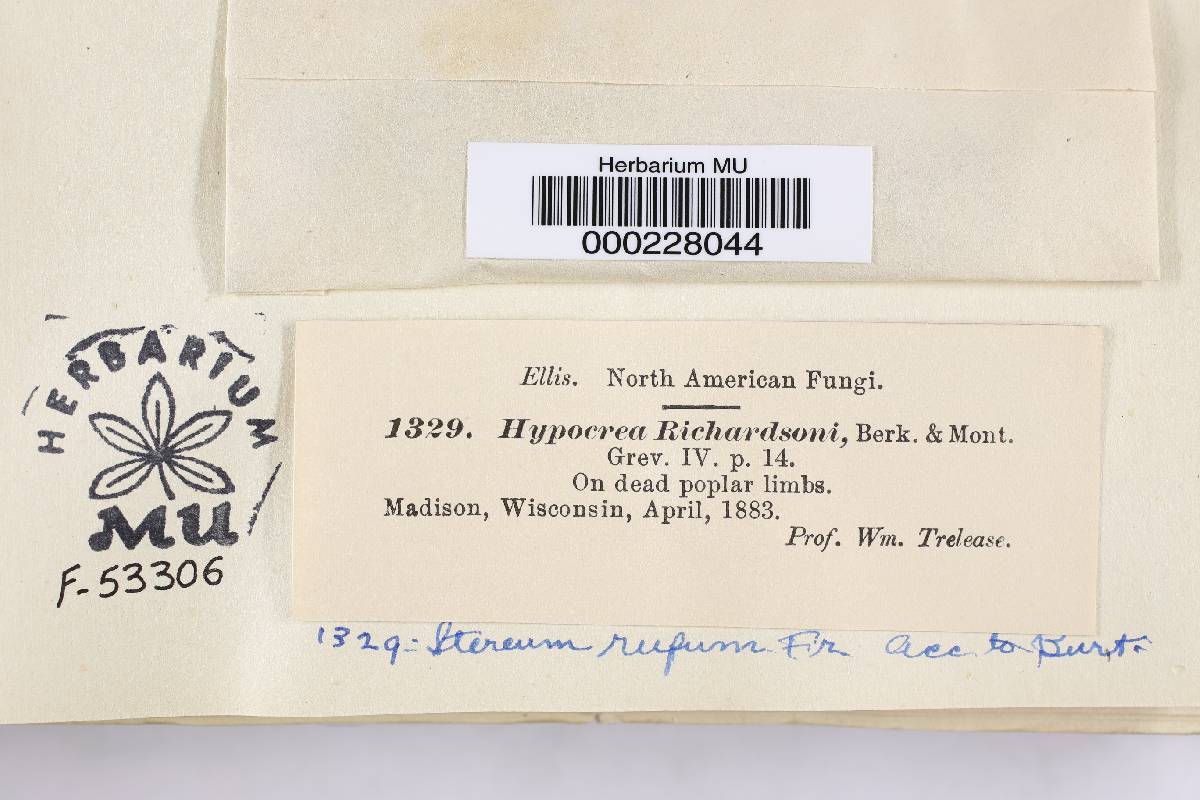 Herbarium MU
000228044
HERBARIUM
MU
F-53306
Ellis. North American Fungi.
1329. Hypocrea Richardsoni, Berk. & Mont.
Grev. IV. p. 14.
On dead poplar limbs.
Madison, Wisconsin, April, 1883.
Prof. Wm. Trelease.
1329 = Stereum rufum Fr. Acc. to Burt.